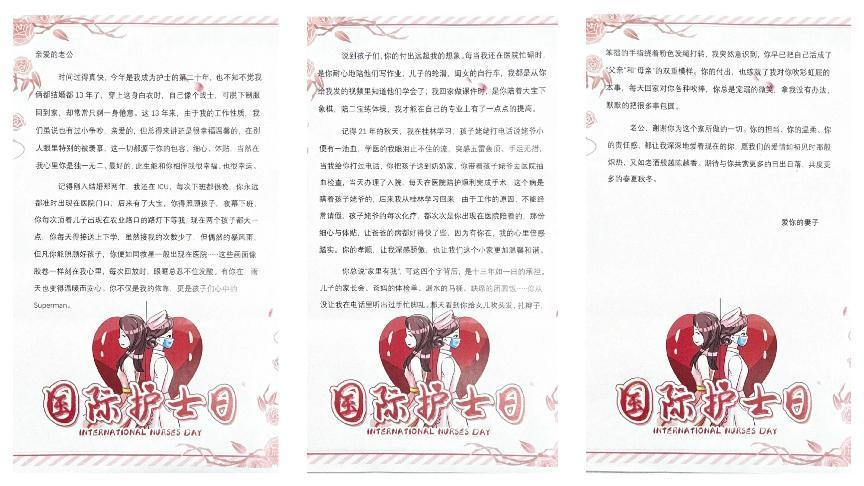 亲爱的老公
时间过得真快，今年是我成为护士的第二十年，也不知不觉我
俩都结婚 13 年了，穿上这身白衣时，自己像个战士，可脱下制服
回到家，却常常只剩一身倦意。这 13 年来，由于我的工作性质，我
们虽说也有过小争吵，亲爱的，但总得来讲还是很幸福温馨的，在别
人眼里特别的被羡慕，这一切都源于你的包容、细心、体贴，当然在
我心里你是独一无二、最好的，此生能和你相伴我很幸福、也很幸运。
记得刚入结婚那两年，我还在 ICU，每次下班都很晚，你永远
都准时出现在医院门口；后来有了大宝，你得照顾孩子，夜幕下班，
你每次顶着儿子出现在农业路口的路灯下等我；现在两个孩子都大一
点，你每天得接送上下学，虽然接我的次数少了，但偶然的暴风雨，
但凡你能照顾好孩子，你便如同救星一般出现在医院……这些画面像
胶卷一样刻在我心里，每次回放时，眼眶总忍不住发酸。有你在，雨
天也变得温暖而安心，你不仅是我的依靠，更是孩子们心中的
Superman。
国际护士日
INTERNATIONAL NURSES DAY
说到孩子们，你的付出远超我的想象。每当我还在医院忙碌时，
是你耐心地陪他们写作业；儿子的轮滑，闺女的自行车，我都是从你
给我发的视频里知道他们学会了；我回家做课件时，是你陪着大宝下
象棋，陪二宝练体操，我才能在自己的专业上有了一点点的提高。
记得 21 年的秋天，我在桂林学习，孩子姥姥打电话说姥爷小
便有一池血，学医的我眼泪止不住的流，突感五雷轰顶、手足无措，
当我给你打过电话，你把孩子送到奶奶家，你带着孩子姥爷去医院抽
血检查，当天办理了入院，每天在医院陪护顺利完成手术，这个病是
瞒着孩子姥爷的，后来我从桂林学习回来，由于工作的原因，不能经
常请假，孩子姥爷的每次化疗，都次次是你出现在医院陪着的，那份
细心与体贴，让爸爸的病都好得快了些，因为有你在，我的心里倍感
踏实。你的孝顺，让我深感骄傲，也让我们这个小家更加温馨和谐。
你总说"家里有我"，可这四个字背后，是十三年如一日的承担。
儿子的家长会、爸妈的体检单、漏水的马桶、缺席的团圆饭……你从
没让我在电话里听出过手忙脚乱。那天看到你给女儿吹头发、扎辫子，
国际护士日
INTERNATIONAL NURSES DAY
笨拙的手指绕着粉色发绳打转，我突然意识到，你早已把自己活成了
"父亲"和"母亲"的双重模样。你的付出，也练就了我对你吹彩虹屁的
本事，每天回家对你各种吹捧，你总是宠溺的微笑，拿我没有办法，
默默的把很多事包圆。
老公，谢谢你为这个家所做的一切。你的担当、你的温柔、你
的责任感，都让我深深地爱着现在的你，愿我们的爱情如初见时那般
炽热，又如老酒般越陈越香。期待与你共赏更多的日出日落，共度更
多的春夏秋冬。
爱你的妻子
国际护士日
INTERNATIONAL NURSES DAY